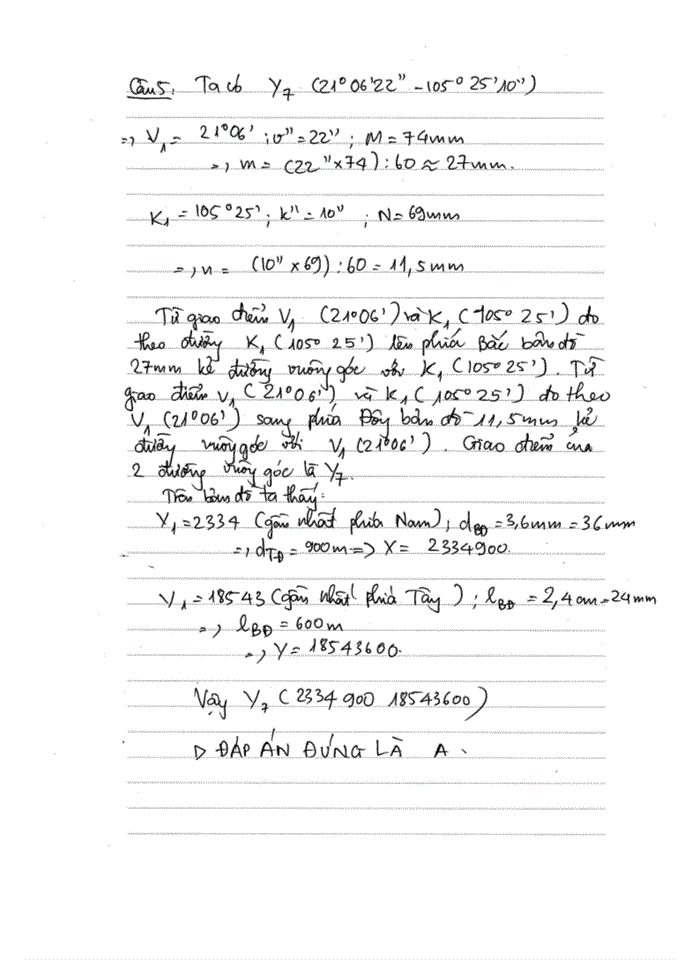 Câu 5: Ta có Y7 (21º 06'22" - 105º 25'10")
=, V1 = 21º06' ; v" = 22" ; M = 74mm
=, m = (22" x 74) : 60 ≈ 27mm.
K1 = 105º25' ; k" = 10" ; N = 69mm
=, n = (10" x 69) : 60 = 11,5mm
Từ giao điểm V1 (21º06') và K1 (105º 25') đo
theo đường K1 (105º 25') lên phía Bắc bản đồ
27mm kẻ đường vuông góc với K1 (105º25'). Từ
giao điểm V1 (21º06') và K1 (105º25') đo theo
V1 (21º06') sang phía Đông bản đồ 11,5mm kẻ
đường vuông góc với V1 (21º06'). Giao điểm của
2 đường vuông góc là Y7.
Trên bản đồ ta thấy:
X1 = 2334 (gần nhất phía Nam), dBĐ = 3,6mm = 36mm
=, dTĐ = 900m => X = 2334900.
Y1 = 18543 (gần nhất phía Tây) ; lBĐ = 2,4cm = 24mm
=, lBĐ = 600m
=, Y = 18543600.
Vậy Y7 (2334900 18543600)
▷ ĐÁP ÁN ĐÚNG LÀ A.